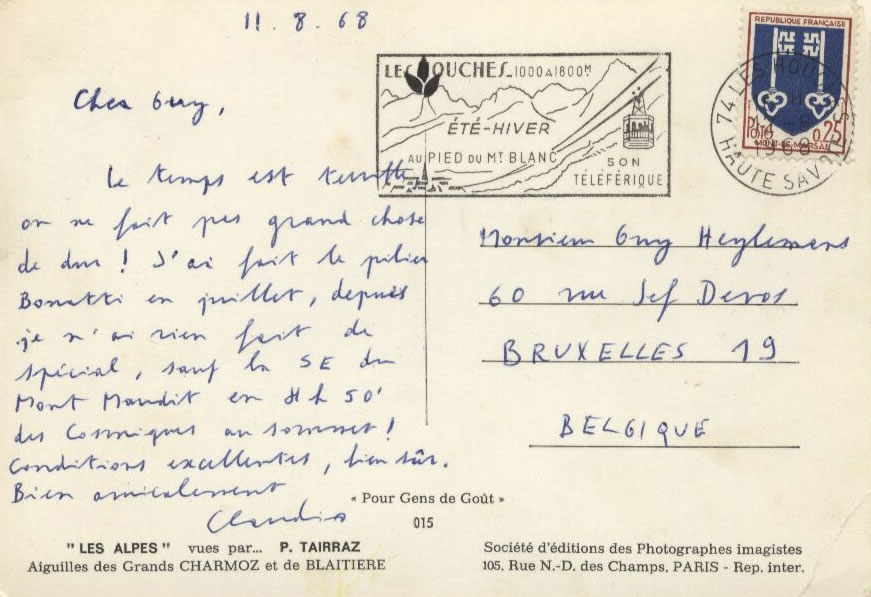 11. 8. 68
Cher Guy,
Le temps est terrible
on ne fait pas grand chose
de dur ! J'ai fait le pilier
Bonatti en juillet, depuis
je n'ai rien fait de
spécial, sauf la SE du
Mont Maudit en 4h 50'
des Cosmiques au sommet !
Conditions excellentes, bien sûr.
Bien amicalement
Claudio
LES HOUCHES_1000 A 1800M
ÉTÉ-HIVER
AU PIED DU MT BLANC
SON
TÉLÉFÉRIQUE
REPUBLIQUE FRANÇAISE
0,25
MONT-DE-MARSAN
74 LES HOUCHES
1968
HAUTE SAVOIE
Monsieur Guy Heylemans
60 rue Jef Devos
BRUXELLES 19
BELGIQUE
« Pour Gens de Goût »
015
"LES ALPES" vues par... P. TAIRRAZ
Aiguilles des Grands CHARMOZ et de BLAITIERE
Société d'éditions des Photographes imagistes
105, Rue N.-D. des Champs, PARIS - Rep. inter.